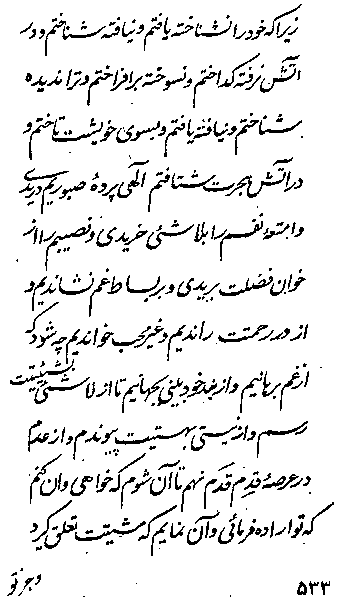 زیرا که خود را نشناخته یافتم و نیافته شناختم و در
آتش نرفته گداختم و نسوخته برافراختم و ترا ندیده
شناختم و نیافته یافتم و بسوی خویشت تاختم و
در آتش هجرت شتافتم الهی پردهٔ صبوریم دریدی
و امتعهٔ نفسم را بلاشئی خریدی و نصیبم را از
خوان فضلت بریدی و بر بساط غم نشاندیم و
از در رحمت راندیم و غیر محب خواندیم چه شود که
از غم برهانیم و از بند خودبینی بجهانیم تا از لاشئی بشیئیت
رسم و از نیستی بهستیت پیوندم و از عدم
در عرصهٔ قدم قدم نهم تا آن شوم که خواهی و آن کنم
که تو اراده فرمائی و آن نمایم که مشیتت تعلق گیرد
و جز تو
۵۳۳